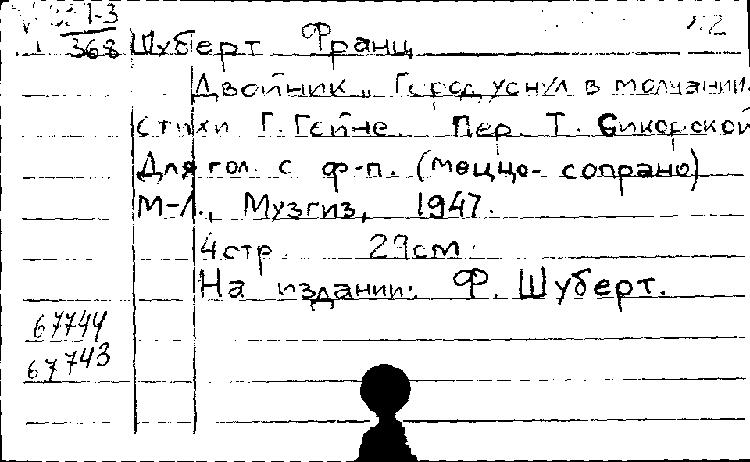 1-3
368 Шуберт Франц
Двойник „ Город уснул в молчании.
стихи Г. Гейне. Пер. Т. Сикорской
Для гол. с ф-п. (меццо-сопрано)
М-Л., Музгиз, 1947.
4 стр. 29 см.
На издании: Ф. Шуберт.
67744
67743